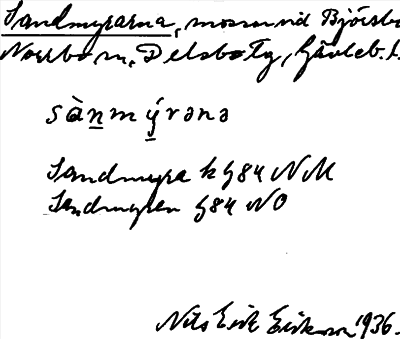 Sandmyrarna, mossar vid Björsbo
Norrbo sn, Delsbo tg, Gävleb. l.
sàn̲mý̲rənə
Sandmyra k G84 NM
Sandmyren G84 NO
Nils Erik Eriksson 1936.